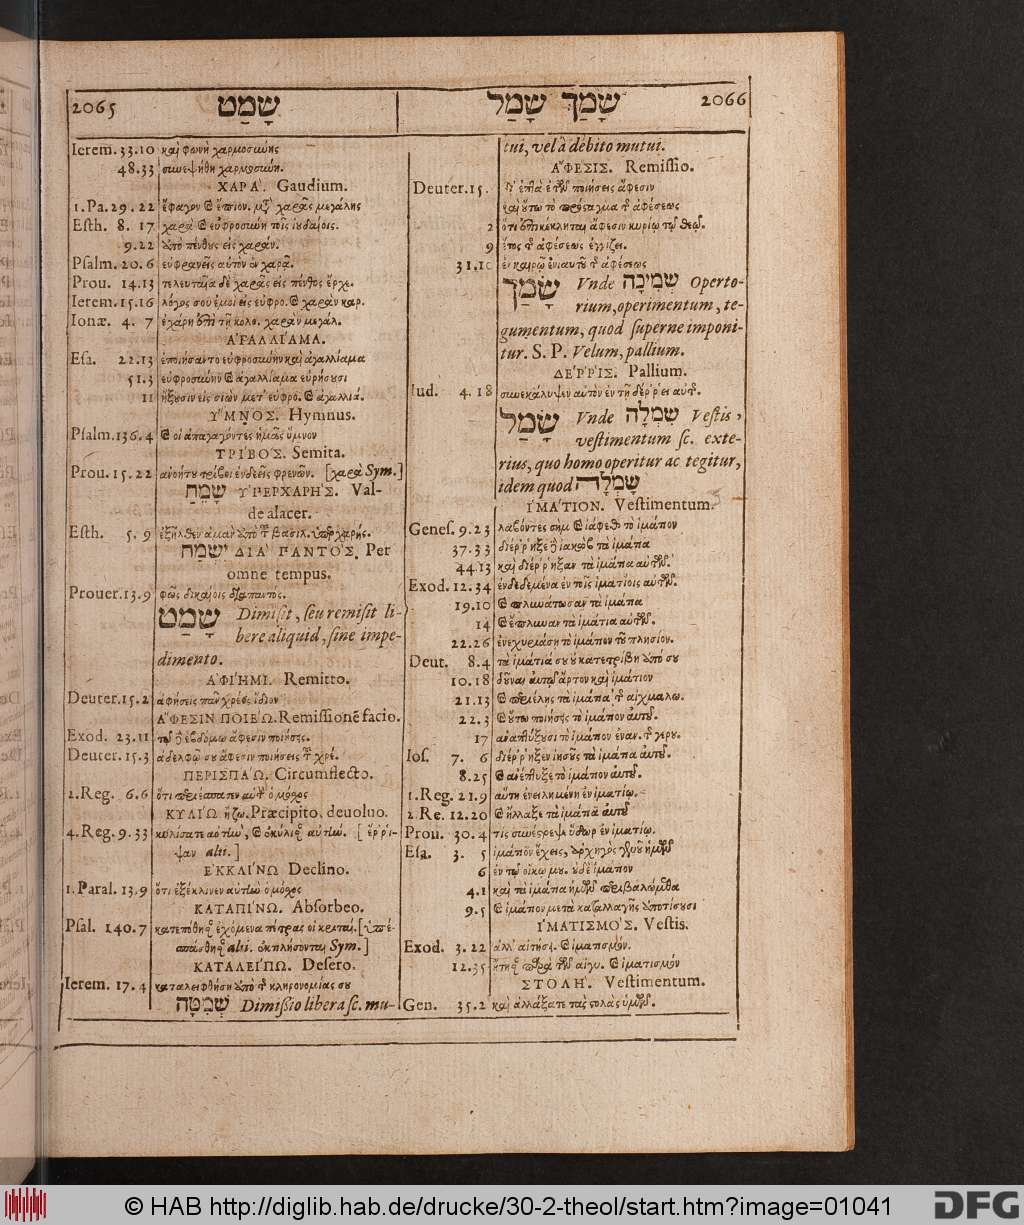 2065 שָׁמַט
Ierem. 33.10 καὶ φωνὴ χαρμοσύνης
48.33 συνεψήθη χαρμοσύνη.
ΧΑΡΑ'. Gaudium.
1. Pa. 29. 22 ἔφαγον καὶ ἔπιον. μετὰ χαρᾶς μεγάλης
Esth. 8. 17 χαρὰ καὶ εὐφροσύνη τοῖς ἰουδαίοις.
9.22 ἀπὸ πένθους εἰς χαράν.
Psalm. 20. 6 εὐφρανεῖς αὐτὸν ἐν χαρᾷ.
Prou. 14.13 τελευταῖα δὲ χαρᾶς εἰς πένθος ἔρχε.
Ierem. 15.16 λόγος σου ἐμοὶ εἰς εὐφρο. καὶ χαρὰν καρ.
Ionæ. 4. 7 ἐχάρη ἐπὶ τῇ κολο. χαρὰν μεγάλ.
ΑΓΑΛΛΙΑΜΑ.
Esa. 22.13 ἐποιήσαντο εὐφροσύνην καὶ ἀγαλλίαμα
51.3 εὐφροσύνην καὶ ἀγαλλίαμα εὑρήσουσι
11 ἥξουσιν εἰς σιὼν μετ' εὐφρο. καὶ ἀγαλλιά.
Υ῞ΜΝΟΣ. Hymnus.
Psalm. 136. 4 καὶ οἱ ἀπαγαγόντες ἡμᾶς ὕμνον
ΤΡΙΒΟΣ. Semita.
Prou. 15. 22 ἀνοήτου τρίβοι ἐνδεεῖς φρενῶν. [χαρὰ Sym.]
שָׂמֵחַ ΥΠΕΡΧΑΡΗ'Σ. Val-
de alacer.
Esth. 5. 9 ἐξῆλθεν ἀμὰν ἀπὸ τοῦ βασιλ. ὑπερχαρής.
יִשְׂמַח ΔΙΑ' ΠΑΝΤΟ'Σ. Per
omne tempus.
Prouer. 13.9 φῶς δικαίοις διαπαντός.
שָׁמַט Dimisit, seu remisit li-
bere aliquid, sine impe-
dimento.
ΑΦΙΗΜΙ. Remitto.
Deuter. 15. 2 ἀφήσεις πᾶν χρέος ἴδιον
ΑΦΕΣΙΝ ΠΟΙΕΩ. Remissionē facio.
Exod. 23.11 τῷ δὲ ἑβδόμῳ ἄφεσιν ποιήσεις.
Deuter. 15.3 ἀδελφῷ σου ἄφεσιν ποιήσεις τοῦ χρέ.
ΠΕΡΙΣΠΑΩ. Circumflecto.
2. Reg. 6.6 ὅτι περιέσπασεν αὐτὴν ὁ μόσχος
ΚΥΛΙΩ ἤζω. Præcipito, deuoluo.
4. Reg. 9. 33 κυλίσατε αὐτὴν, καὶ ἐκύλισαν αὐτήν. [ ἔῤῥι-
ψαν alii.]
ΕΚΚΛΙΝΩ Declino.
1. Paral. 13.9 ὅτι ἐξέκλινεν αὐτὴν ὁ μόσχος
ΚΑΤΑΠΙΝΩ. Absorbeo.
Psal. 140. 7 κατεπόθησαν ἐχόμενα πέτρας οἱ κριταί.
Sym. ]
ΚΑΤΑΛΕΙΠΩ. Desero.
Ierem. 17. 4 καταλειφθήσῃ ἀπὸ τῆς κληρονομίας σου
שְׁמִטָּה Dimißio libera sc. mu-
שָׂמַךְ שָׂמַל 2066
tui, vel à debito mutui.
Α῎ΦΕΣΙΣ. Remissio.
Deuter. 15. δι' ἑπτὰ ἐτῶν ποιήσεις ἄφεσιν
καὶ οὕτω τὸ πρόσταγμα τῆς ἀφέσεως
2 ὅτι ἐπικέκληται ἄφεσιν κυρίῳ τῷ θεῷ.
9 ἔτος τῆς ἀφέσεως ἐγγίζει.
31.10 ἐν καιρῷ ἐνιαυτοῦ τῆς ἀφέσεως
שָׂמַךְ Vnde שְׂמִיכָה Operto-
rium, operimentum, te-
gumentum, quod superne imponi-
tur. S. P. Velum, pallium.
ΔΕ'ΡΡΙΣ. Pallium.
Iud. 4. 18 συνεκάλυψεν αὐτὸν ἐν τῇ δέῤῥει αὐτῆς.
שָׂמַל Vnde שִׂמְלָה Vestis,
vestimentum sc. exte-
rius, quo homo operitur ac tegitur,
idem quod שַׂלְמָה
ΙΜΑΤΙΟΝ. Vestimentum.
Genes. 9. 23 λαβόντες σὴμ καὶ ἰάφεθ τὸ ἱμάτιον
37.33 διέῤῥηξε δὲ ἰακὼβ τὰ ἱμάτια
44.13 καὶ διέῤῥηξαν τὰ ἱμάτια αὐτῶν.
Exod. 12.34 ἐνδεδεμένα ἐν τοῖς ἱματίοις αὐτῶν.
19.10 καὶ πλυνάτωσαν τὰ ἱμάτια
14 καὶ ἔπλυναν τὰ ἱμάτια αὐτῶν.
22.26 ἐνεχυράσῃ τὸ ἱμάτιον τοῦ πλησίον.
Deut. 8.4 τὰ ἱμάτιά σου οὐ κατετρίβη ἀπὸ σοῦ
10.18 δοῦναι αὐτῷ ἄρτον καὶ ἱμάτιον
21.13 καὶ περιελεῖς τὰ ἱμάτια τῆς αἰχμαλω.
22.3 καὶ οὕτω ποιήσεις τὸ ἱμάτιον αὐτοῦ.
17 ἀναπτύξουσι τὸ ἱμάτιον ἐναν. τῆς γερου.
Ios. 7. 6 διέῤῥηξεν ἰησοῦς τὰ ἱμάτια αὐτοῦ.
8.25 καὶ ἀνέπτυξε τὸ ἱμάτιον αὐτοῦ.
1. Reg. 21.9 αὕτη ἐνειλημένη ἐν ἱματίῳ.
2. Re. 12.20 καὶ ἤλλαξε τὰ ἱμάτια αὐτοῦ
Prou. 30. 4 τίς συνέστρεψε ὕδωρ ἐν ἱματίῳ.
Esa. 3. 5 ἱμάτιον ἔχεις, ἀρχηγὸς γενοῦ ἡμῶν
6 ἐν τῷ οἴκῳ μου. οὐδὲ ἱμάτιον
4.1 καὶ τὰ ἱμάτια ἡμῶν περιβαλώμεθα
9.5 καὶ ἱμάτιον μετὰ καταλλαγῆς ἀποτίσουσι
ΙΜΑΤΙΣΜΟ'Σ. Vestis.
Exod. 3. 22 ἀλλ' αἰτήσει. καὶ ἱματισμόν.
12.35 ᾔτησαν παρὰ τῶν αἰγυ. καὶ ἱματισμόν
ΣΤΟΛΗ'. Vestimentum.
Gen. 35.2 καὶ ἀλλάξατε τὰς στολὰς ὑμῶν.
© HAB http://diglib.hab.de/drucke/30-2-theol/start.htm?image=01041
DFG